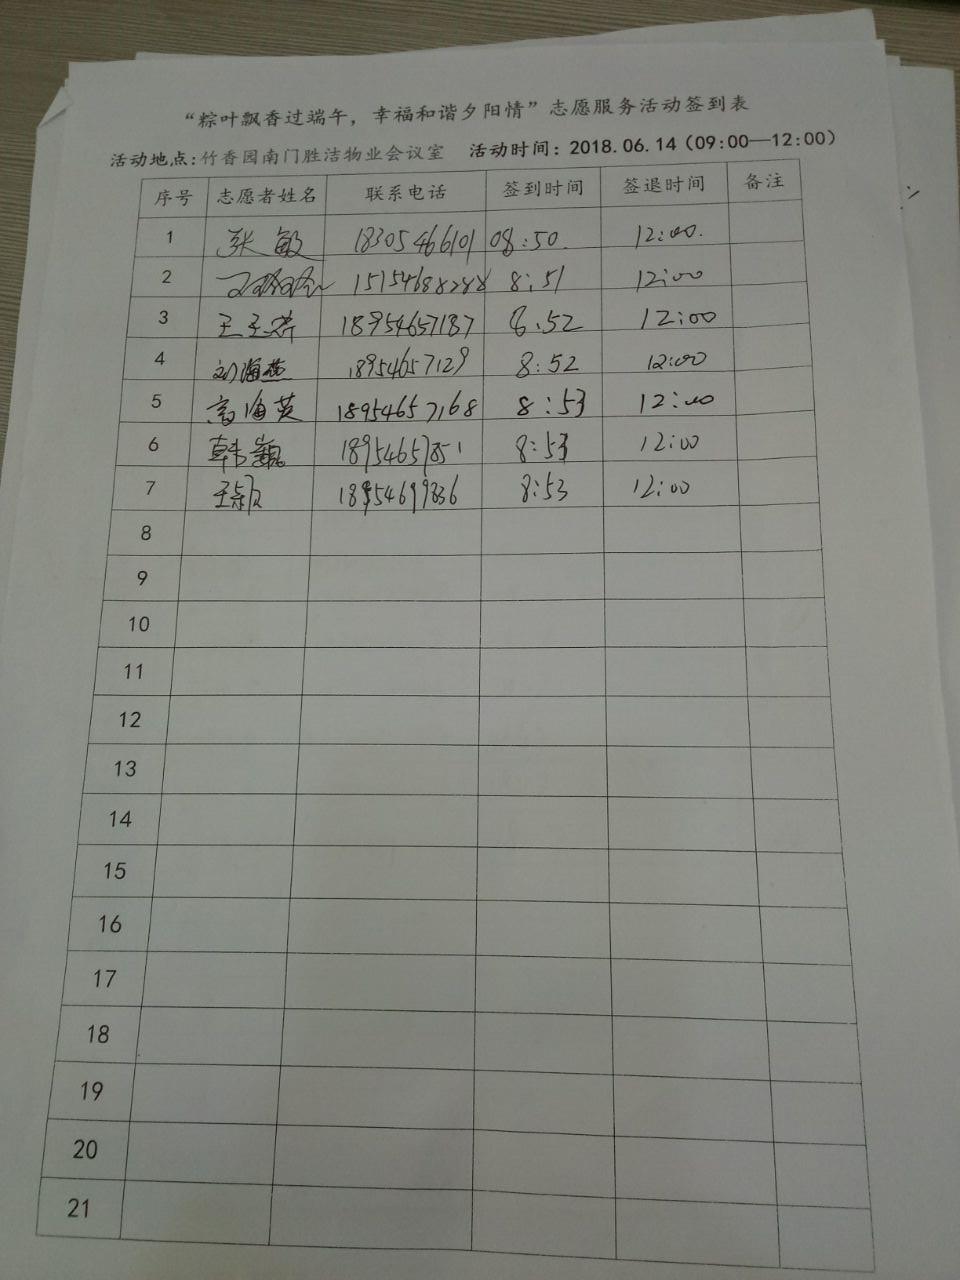 “粽叶飘香过端午，幸福和谐夕阳情”志愿服务活动签到表
活动地点:竹香园南门胜洁物业会议室 活动时间：2018.06.14（09:00—12:00）
序号 志愿者姓名 联系电话 签到时间 签退时间 备注
1 张敏 18305466101 08:50. 12:00.
2 15154688288 8:51 12:00
3 18954657187 8.52 12:00
4 刘海燕 18954657129 8:52 12:00
5 高海英 18954657168 8:53 12:00
6 韩巍 18954657851 8:53 12:00
7 王颖 18954699836 8:53 12:00
8
9
10
11
12
13
14
15
16
17
18
19
20
21